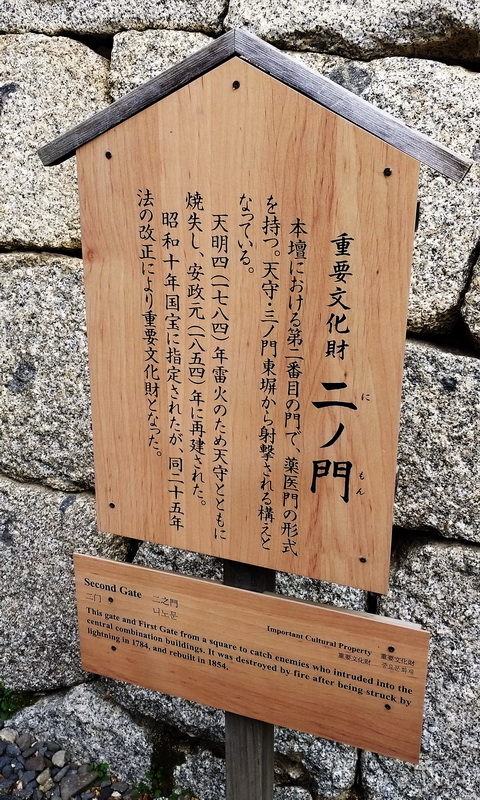 重要文化財 二ノ門
に もん
本壇における第二番目の門で、薬医門の形式
を持つ。天守・三ノ門東塀から射撃される構えと
なっている。
天明四(一七八四)年雷火のため天守とともに
焼失し、安政元(一八五四)年に再建された。
昭和十年国宝に指定されたが、同二十五年
法の改正により重要文化財となった。
Second Gate
二门 二之門
니노문
Important Cultural Property
重要文化財
重要文化财 중요문화재
This gate and First Gate from a square to catch enemies who intruded into the
central combination buildings. It was destroyed by fire after being struck by
lightning in 1784, and rebuilt in 1854.